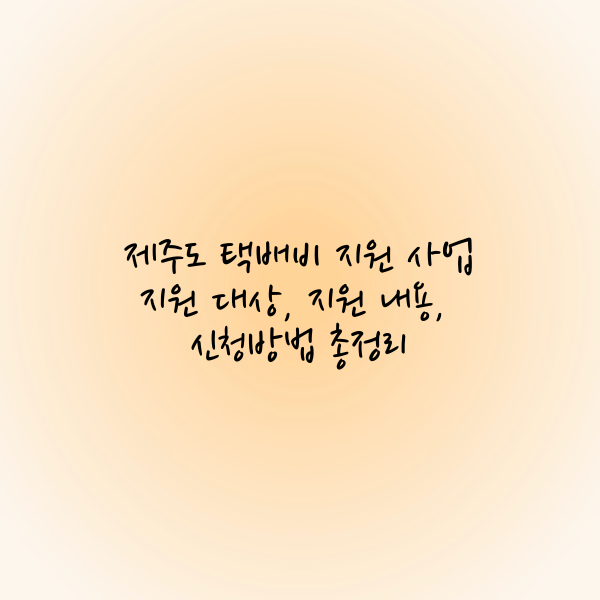 제주도 택배비 지원 사업
지원 대상, 지원 내용,
신청방법 총정리